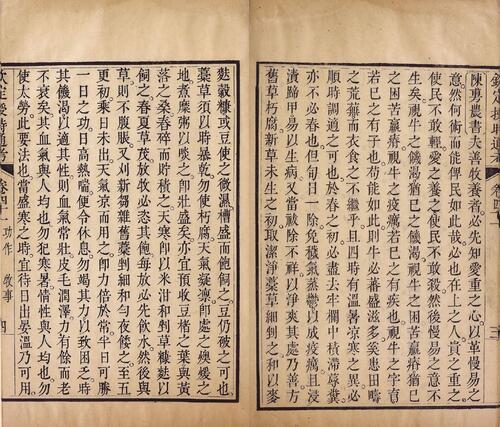 陳旉農書夫善牧養者必先知愛重之心以革慢易之
意然何術而能俾民如此哉必也在上之人貴之重之
使民不敢輕愛之養之使民不敢殺然後慢易之意不
生矣視牛之饑渴猶己之饑渴視牛之困苦羸瘠猶己
之困苦羸瘠視牛之疫癘若己之有疾也視牛之字育
若己之有子也苟能如此則牛必蕃盛滋多奚患田疇
之荒蕪而衣食之不繼乎且四時有溫暑涼寒之異必
順時調適之可也於春之初必盡去牢欄中積滯蓐糞
亦不必春也但旬日一除免穢氣蒸鬱以成疫癘且浸
漬蹄甲易以生病又當祓除不祥以淨爽其處乃善方
舊草朽腐新草未生之初取潔淨藁草細剉之和以麥
麩穀糠或豆使之微濕槽盛而飽飼之豆仍破之可也
藁草須以時暴乾勿使朽腐天氣凝凜即處之燠暖之
地煮糜粥以啖之即壯盛矣亦宜預收豆楮之葉與黃
落之桑舂碎而貯積之天寒即以米泔和剉草糠麩以
飼之春夏草茂放牧必恣其飽每放必先飲水然後與
草則不腹脹又刈新芻雜舊藁剉細和勻夜餧之至五
更初乘日未出天氣涼而用之即力倍於常半日可勝
一日之功日高熱喘便令休息勿竭其力以致困乏時
其饑渴以適其性則血氣常壯皮毛潤澤力有餘而老
不衰矣其血氣與人均也勿犯寒暑情性與人均也勿
使太勞此要法也當盛寒之時宜待日出晏溫乃可用
欽定授時通考 卷四十一 功作 牧事 四